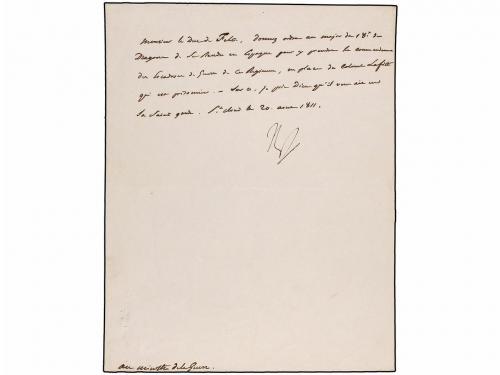 Monsieur le Duc de Feltre, donnez ordre au major du 18e de
Dragons de se rendre en Espagne pour y prendre le commandement
des Escadrons de Guerre de ce Régiment, en place du Colonel Lafitte
qui est prisonnier. — Sur ce, je prie Dieu qu'il vous ait en
sa Sainte garde. St Cloud le 20 1811.
Np
au ministre de la Guerre.